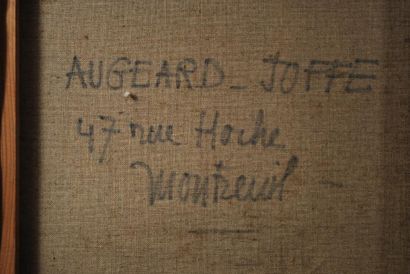 AUGEARD - JOFFE
47 rue Hoche
Montreuil -